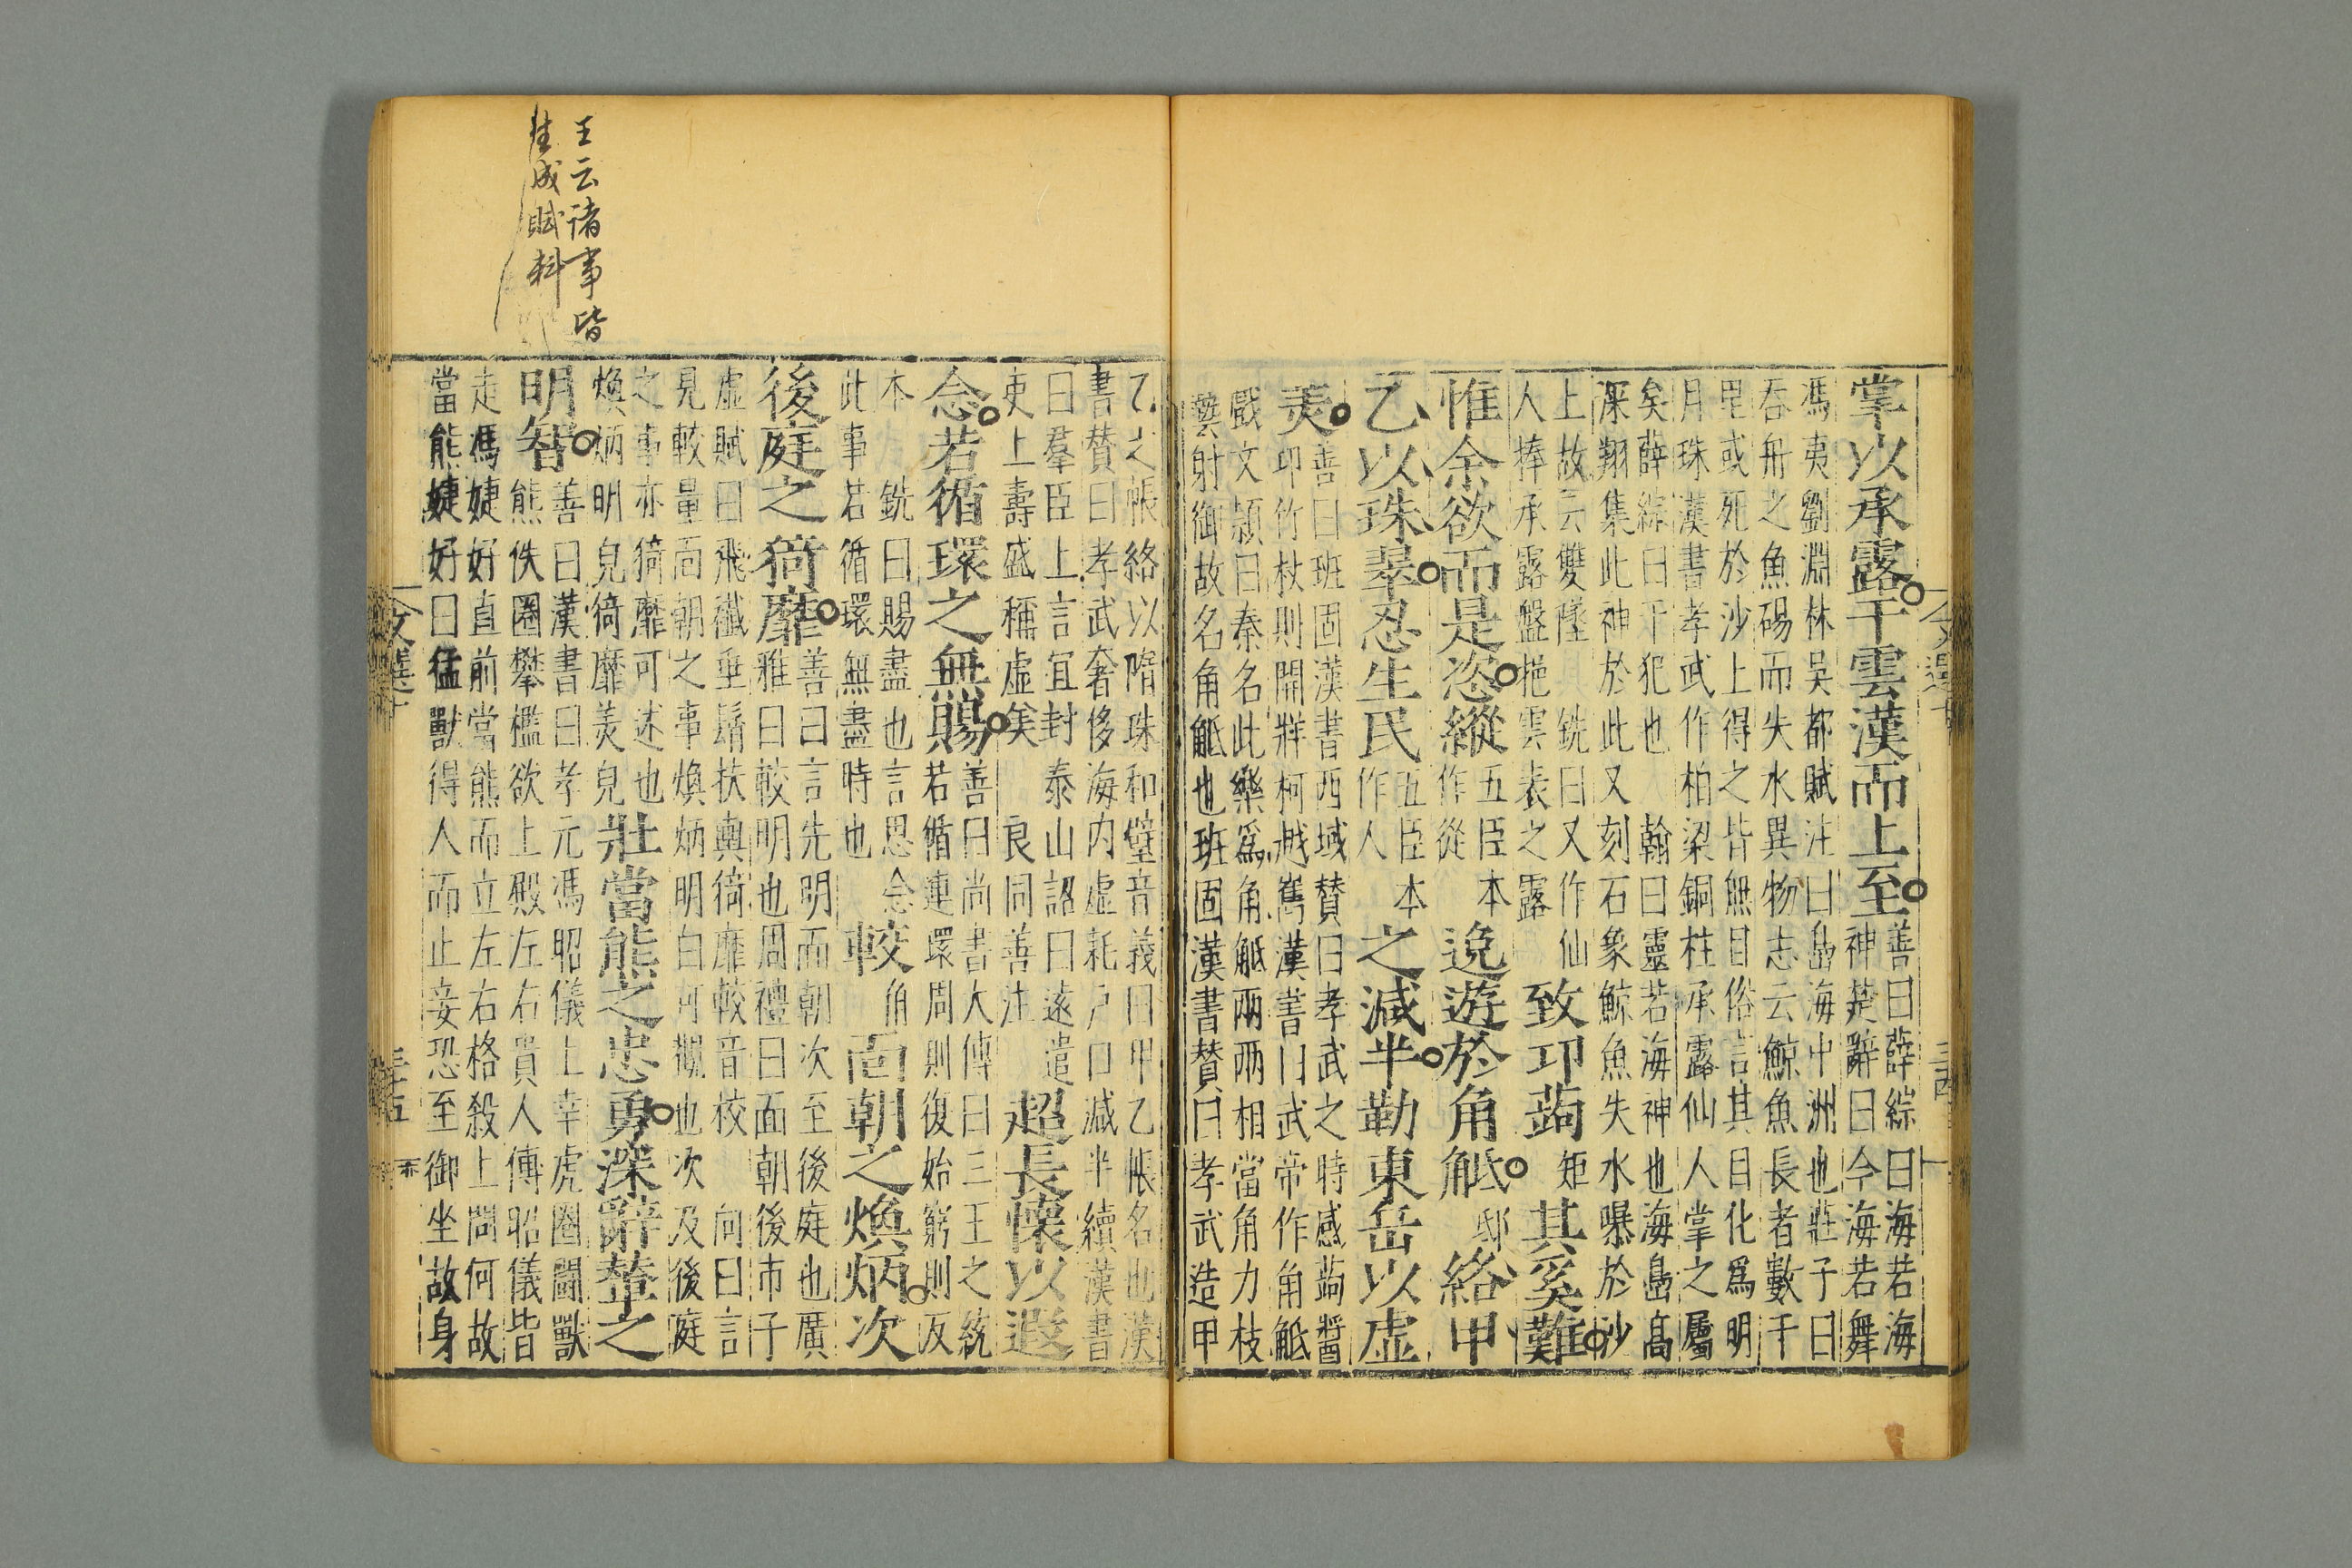 掌以承露干雲漢而上至
善曰薛綜曰海若海
神楚辭曰今海若舞
馮夷劉淵林吳都賦注曰島海中洲也莊子曰
吞舟之魚碭而失水異物志云鯨魚長者數千
里或死於沙上得之皆無目俗言其目化爲明
月珠漢書孝武作柏梁銅柱承露仙人掌之屬
矣薛綜曰干犯也 翰曰靈若海神也海島高
深翔集此神於此又刻石象鯨魚失水曝於沙
上故云雙墜 銑曰又作仙
人捧承露盤挹雲表之露
致卭蒟矩其奚難
惟余欲而是恣縱
五臣本
作從
逸遊於角觝邸絡甲
乙以珠翠忍生民
五臣本
作人
之減半勒東岳以虛
美
善曰班固漢書西域贊曰孝武之時感蒟醬
卭竹杖則開牂柯越嶲漢書曰武帝作角觝
戲文頴曰秦名此樂爲角觝兩兩相當角力枝
藝射御故名角觝也班固漢書贊曰孝武造甲
乙之帳絡以隋珠和璧音義曰甲乙帳名也漢
書贊曰孝武奢侈海內虛耗戶口減半續漢書
曰羣臣上言宜封泰山詔曰遠遣
吏上壽盛稱虛矣 良同善注
超長懷以遐
念若循環之無賜
善曰尚書大傳曰三王之統
若循連環周則復始窮則反
本 銑曰賜盡也言思念
此事若循環無盡時也
較角面朝之煥炳次
後庭之猗靡
善曰言先明而朝次至後庭也廣
雅曰較明也周禮曰面朝後市子
虛賦曰飛纖垂髾扶輿猗靡較音校 向曰言
見較量面朝之事煥炳明白可觀也次及後庭
之事亦猗靡可述也
煥炳明皃猗靡美皃
壯當熊之忠勇深辭輦之
明智
善曰漢書曰孝元馮昭儀上幸虎圈鬬獸
熊佚圈攀檻欲上殿左右貴人傅昭儀皆
走馮婕好直前當熊而立左右格殺上問何故
當熊婕好曰猛獸得人而止妾恐至御坐故身
王云諸事皆
佳成賦料
文選十
三十五
亦